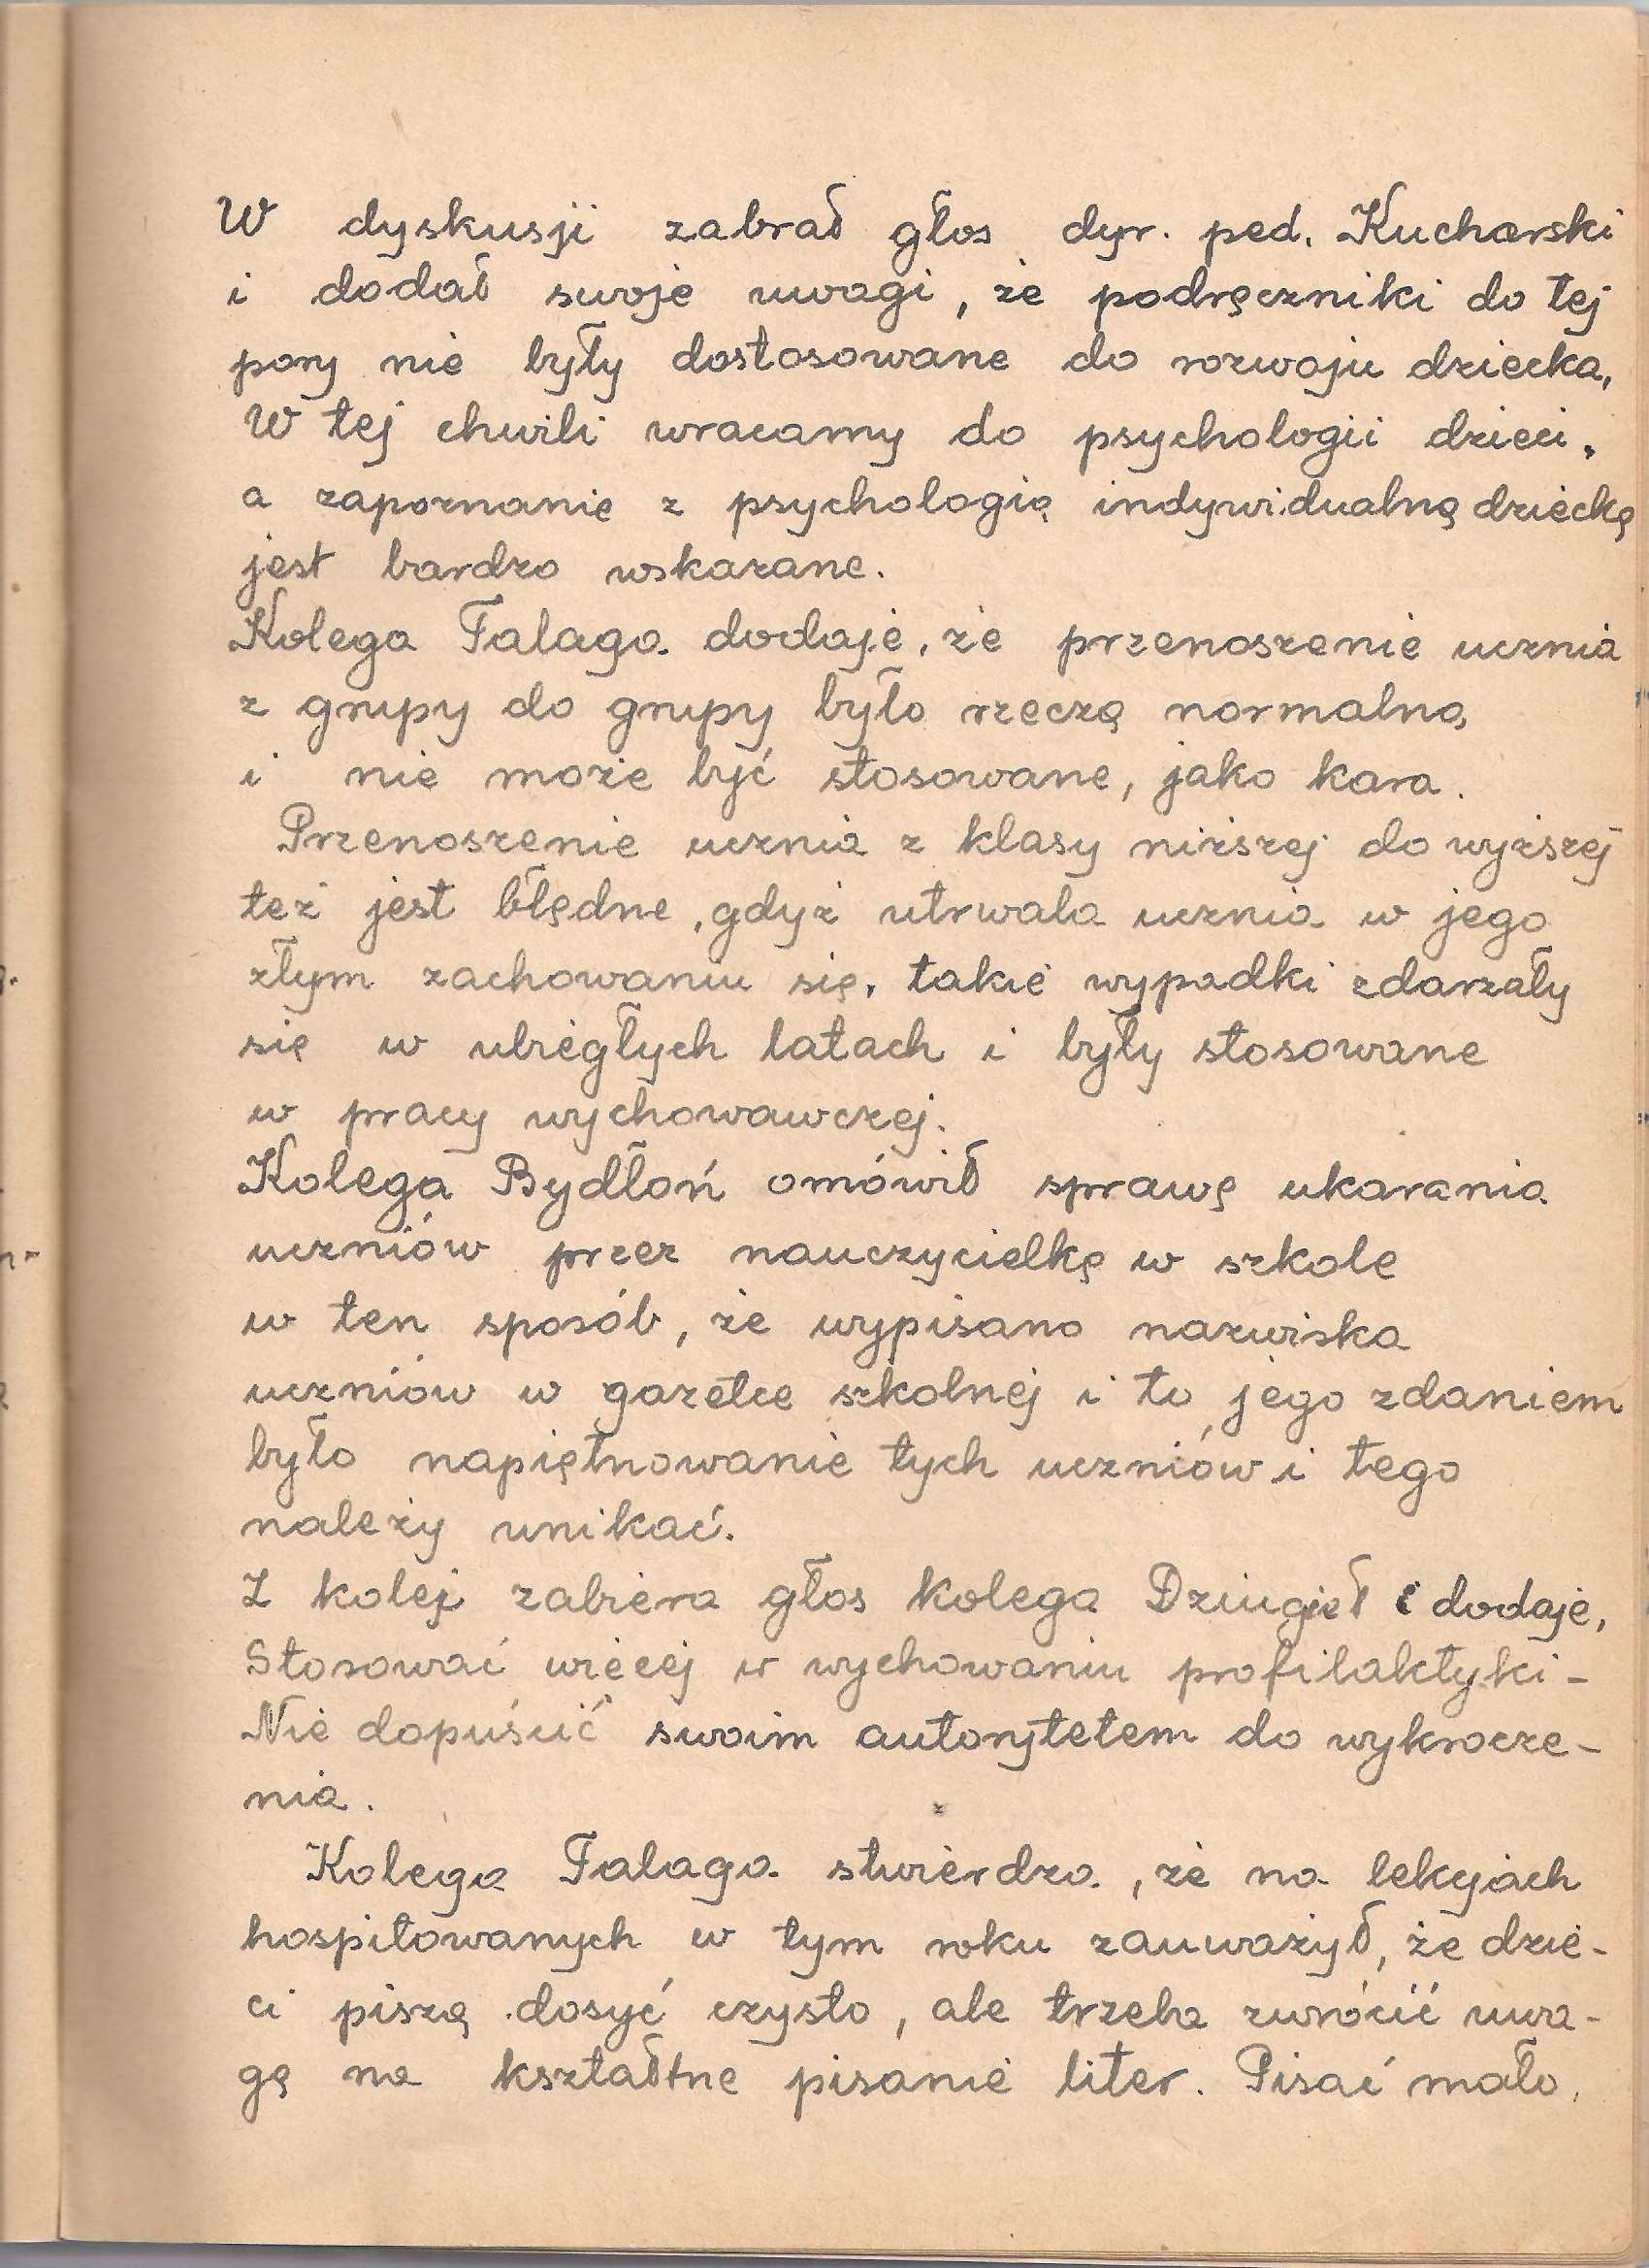 W dyskusji zabrał głos dyr. ped. Kucharski
i dodał swoje uwagi, że podręczniki do tej
pory nie były dostosowane do rozwoju dziecka,
W tej chwili wracamy do psychologii dzieci.
a zapoznanie z psychologią indywidualną dziecką
jest bardzo wskazane.
Kolega Talaga dodaje, że przenoszenie ucznia
z grupy do grupy było rzeczą normalną
i nie może być stosowane, jako kara.
Przenoszenie ucznia z klasy niższej do wyższej
też jest błędne, gdyż utrwala ucznia w jego
złym zachowaniu się, takie wypadki zdarzały
się w ubiegłych latach i były stosowane
w pracy wychowawczej.
Kolega Bydłoń omówił sprawę ukarania
uczniów przez nauczycielkę w szkole
w ten sposób, że wypisano nazwiska
uczniów w gazetce szkolnej i to, jego zdaniem
było napiętnowanie tych uczniów i tego
należy unikać.
Z kolei zabiera głos kolega Dziugieł i dodaje,
Stosować więcej w wychowaniu profilaktyki -
Nie dopuścić swoim autorytetem do wykrocze-
nia.
Kolega Talaga stwierdza, że na lekcjach
hospitowanych w tym roku zauważył, że dzie-
ci piszą dosyć czysto, ale trzeba zwrócić uwa-
gę na kształtne pisanie liter. Pisać mało,